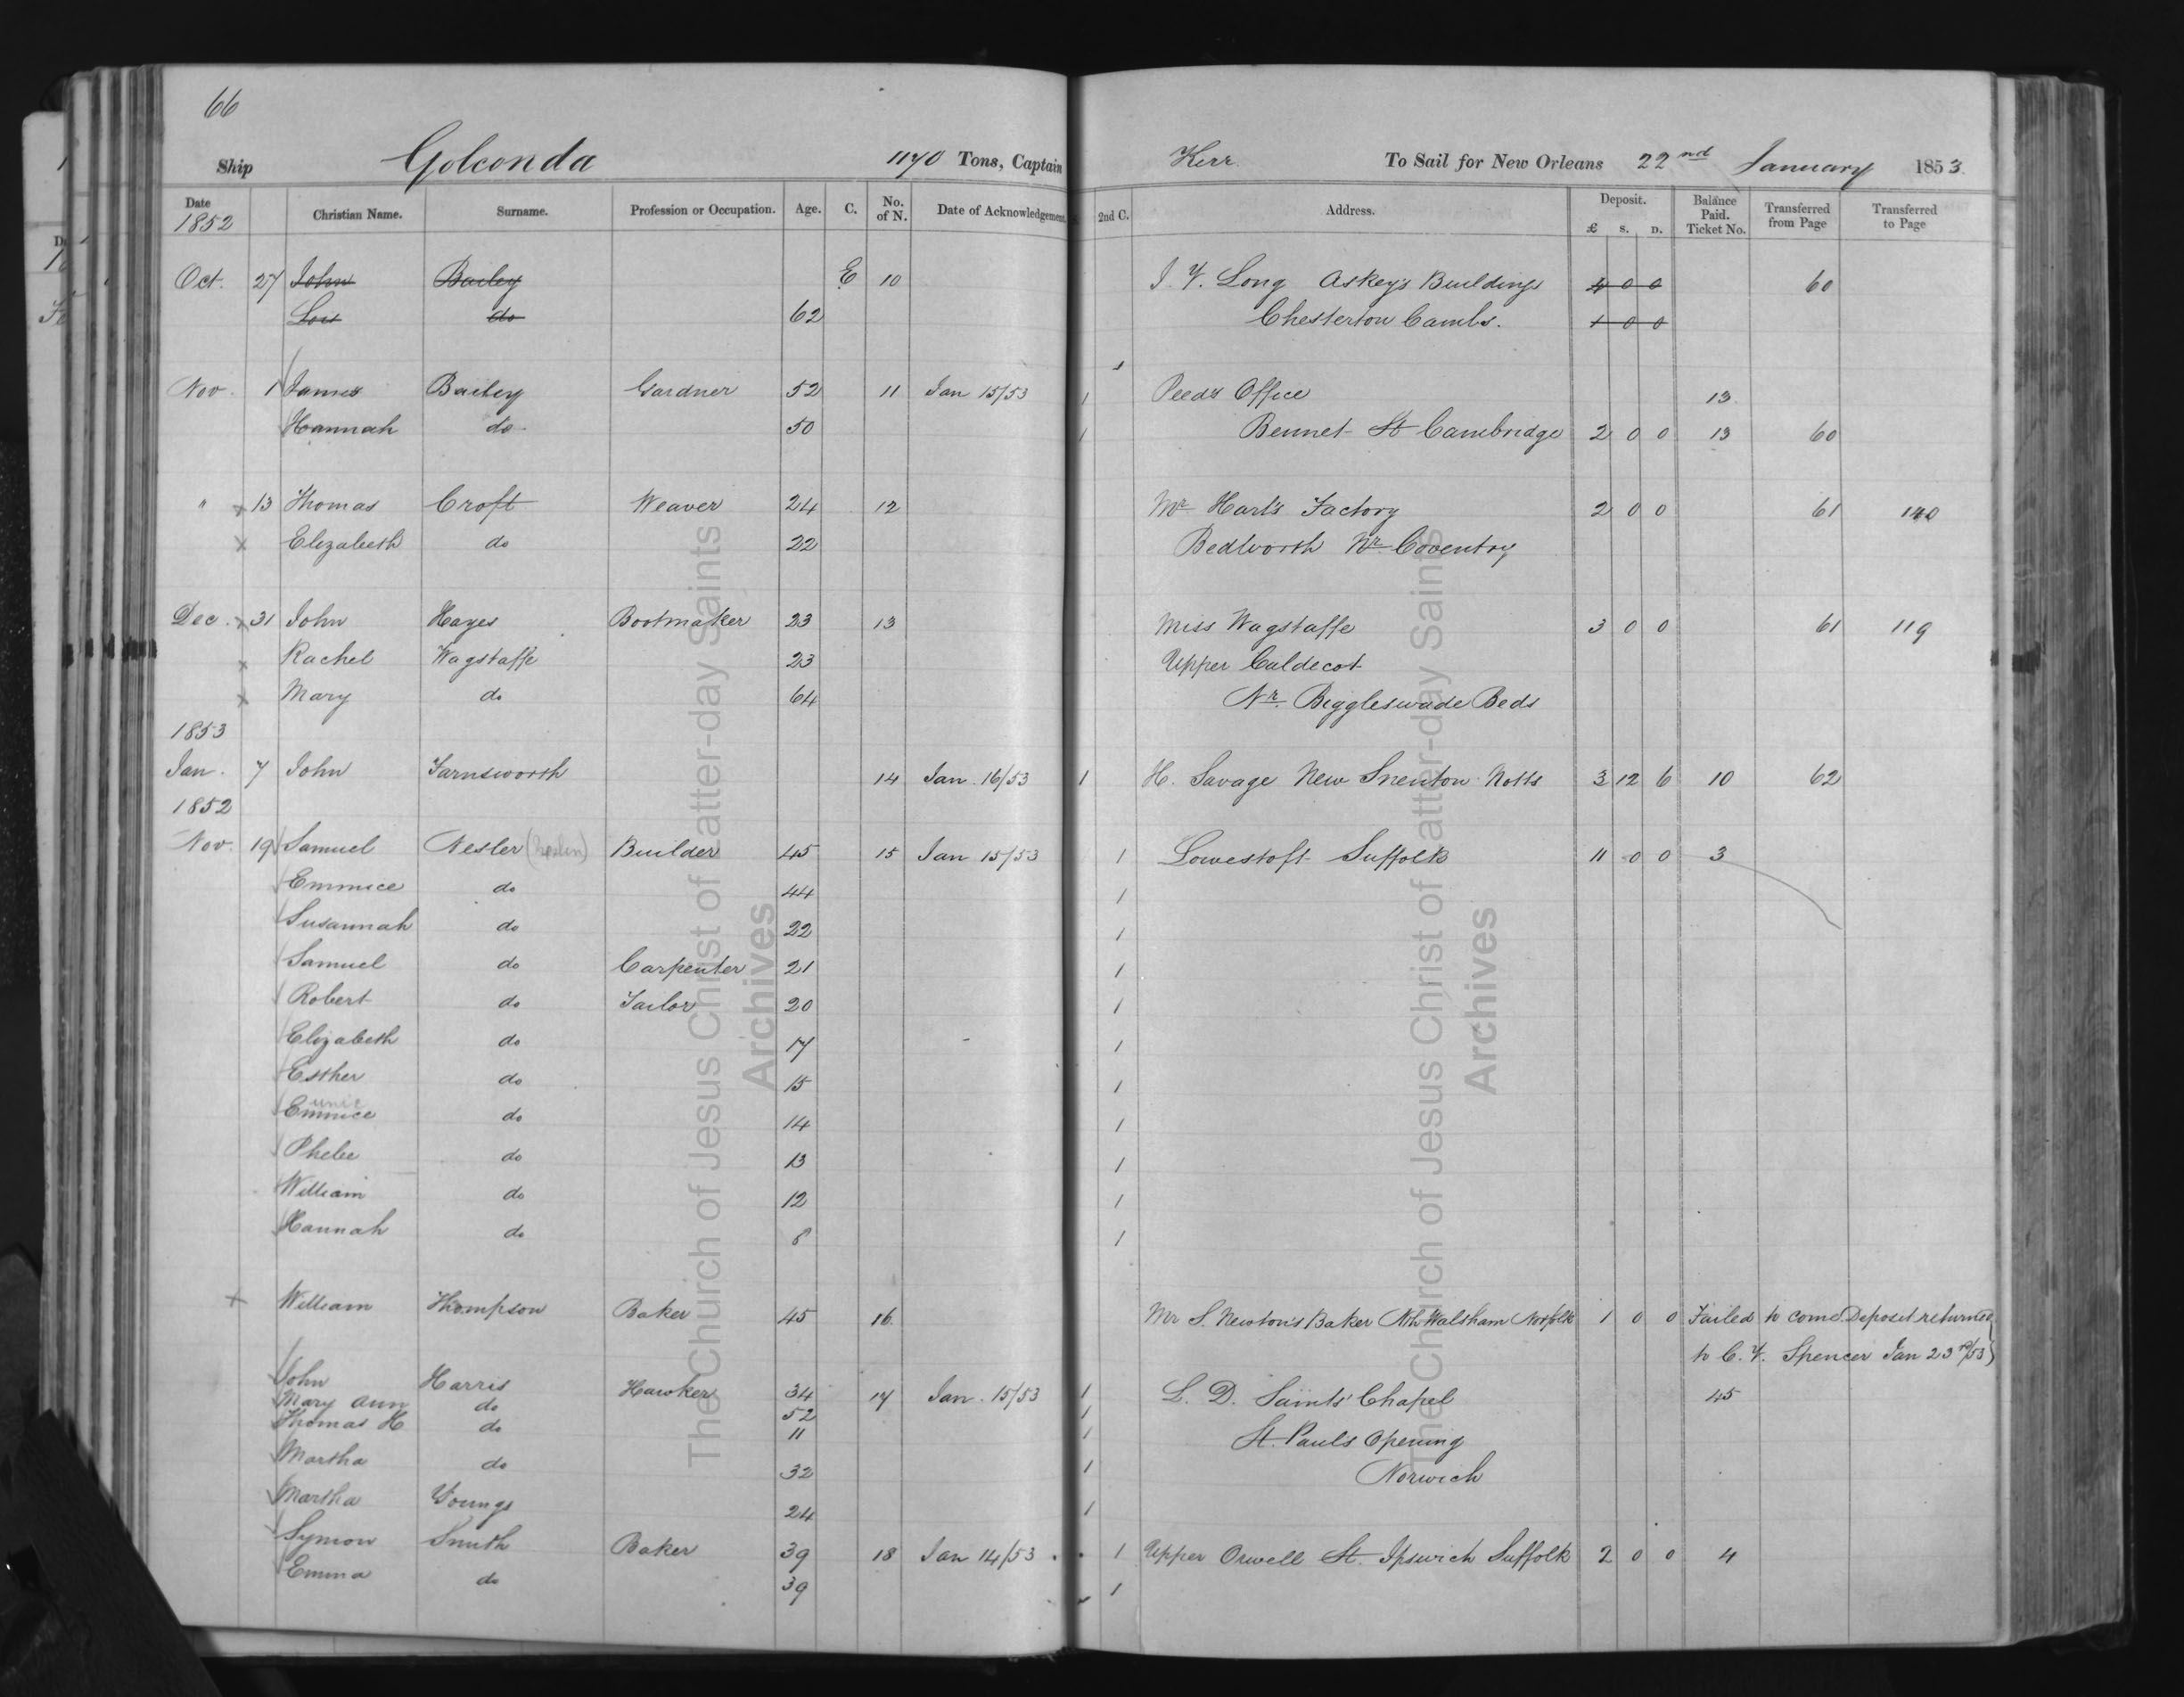 66
Ship Golconda 1170 Tons, Captain Kerr. To Sail for New Orleans 22nd January 1853.
Date 1852 Christian Name. Surname. Profession or Occupation. Age. C. No. of N. Date of Acknowledgement. 2nd C. Address. Deposit. £ s. D. Balance Paid. Ticket No. Transferred from Page Transferred to Page
Oct. 27 John Bailey E 10 J. Y. Long Askey's Buildings 4 0 0 60
Lois do 62 Chesterton Cambs. 1 0 0
Nov. 1 James Bailey Gardner 52 11 Jan 15/53 1 Peed's Office 13
Hannah do 50 1 Bennet St Cambridge 2 0 0 13 60
" x 13 Thomas Croft Weaver 24 12 Mr Hart's Factory 2 0 0 61 140
x Elizabeth do 22 Bedworth Nr Coventry
Dec. x 31 John Hayes Bootmaker 23 13 Miss Wagstaffe 3 0 0 61 119
x Rachel Wagstaffe 23 Upper Caldecot
x Mary do 64 Nr. Biggleswade Beds
1853
Jan. 7 John Farnsworth 14 Jan. 16/53 1 H. Savage New Snenton Notts 3 12 6 10 62
1852
Nov. 19 Samuel Nesler Builder 45 15 Jan 15/53 1 Lowestoft Suffolk 11 0 0 3
Emmice do 44 1
Susannah do 22 1
Samuel do Carpenter 21 1
Robert do Tailor 20 1
Elizabeth do 17 1
Esther do 15 1
unic
Emmice do 14 1
Phebe do 13 1
William do 12 1
Hannah do 8 1
x William Thompson Baker 45 16. Mr S. Newton's Baker Nth Walsham Norfolk 1 0 0 Failed to come. Deposit returned
to C. Y. Spencer Jan 23rd/53)
John Harris Hawker 34 17 Jan. 15/53 1 L. D. Saints' Chapel 45
Mary Ann do 52 1
Thomas H do 11 1 St. Pauls Opening
Martha do 32 1 Norwich
Martha Youngs 24 1
Symon Smith Baker 39 18 Jan 14/53 1 Upper Orwell St. Ipswich Suffolk 2 0 0 4
Emma do 39 1
The Church of Jesus Christ of Latter-day Saints
Archives
The Church of Jesus Christ of Latter-day Saints
Archives